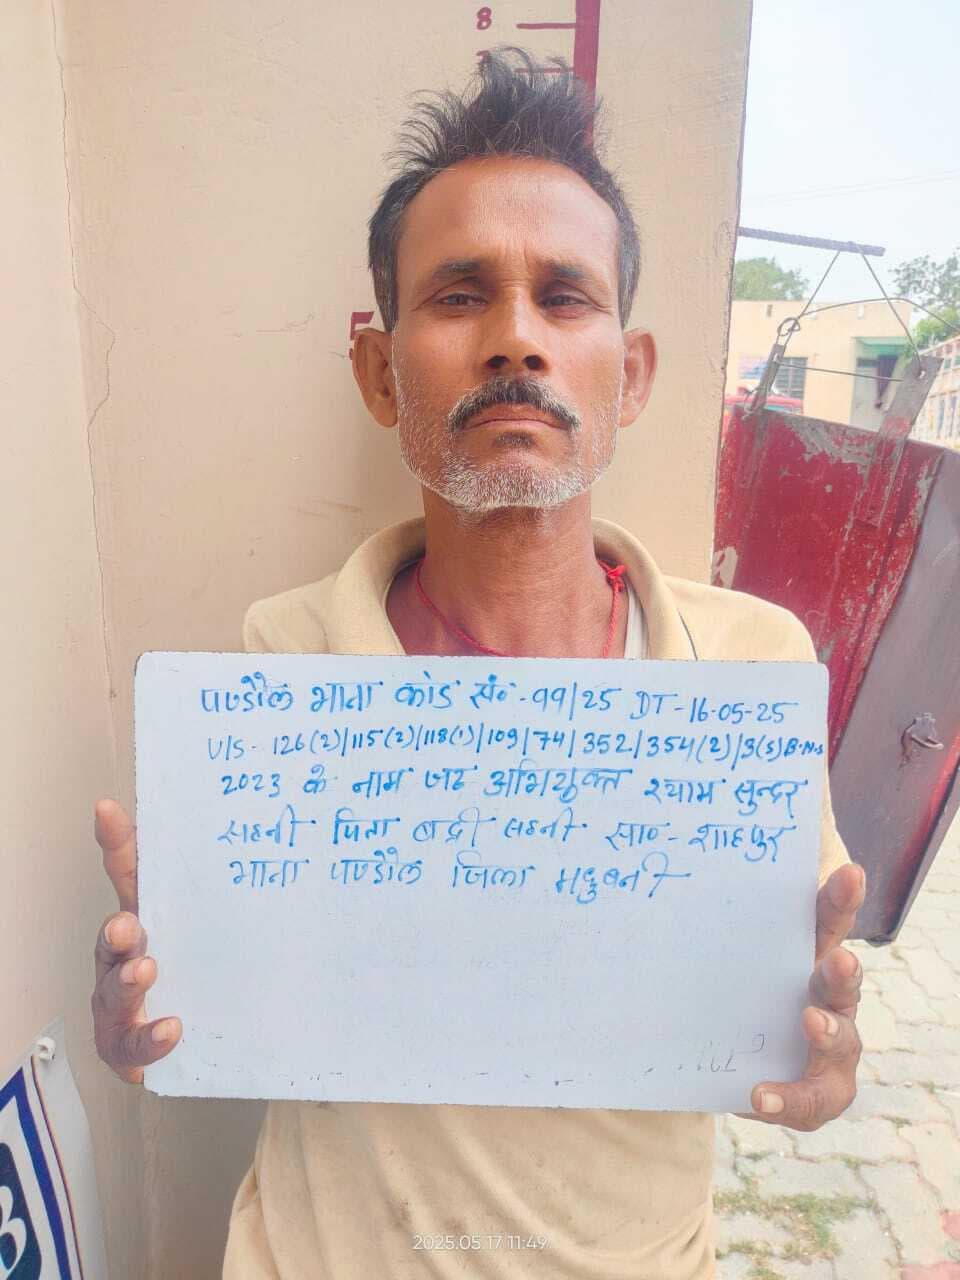 8
7
5
पण्डौल थाना कांड सं०-99/25 DT-16-05-25
U/S- 126(2)/115(2)/118(1)/109/74/352/354(2)/3(5)B.N.S
2023 के नाम जद अभियुक्त श्याम सुन्दर
सहनी पिता बद्री सहनी सा०- शाहपुर
थाना पण्डौल जिला मधुबनी
2025.05.17 11:49